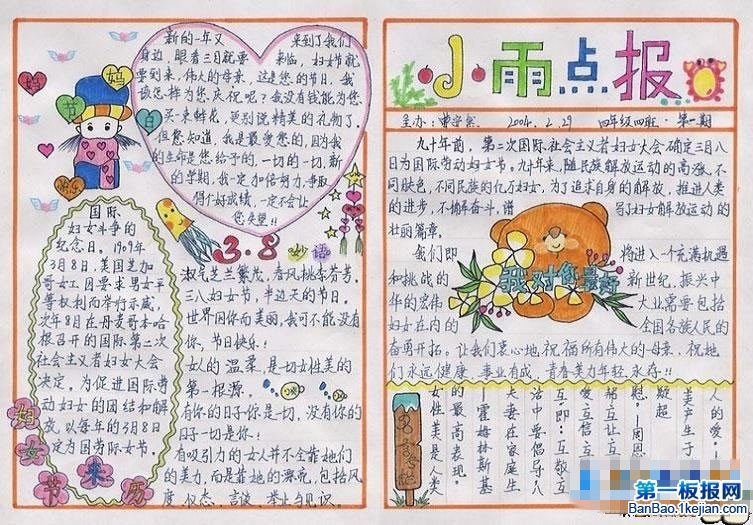 妈
妈
节
日
快乐
新的一年又 来到了我们
身边，眼看三月就要 来临，妇女节就
要到来，伟大的母亲，这是您的节日。我
该怎样为您庆祝呢？我没有钱能为您
买一束鲜花，更别说精美的礼物了。
但您知道，我是最爱您的，因为我
的生命是您给予的，一切的一切，新
的学期，我一定加倍努力，争取
得个好成绩，一定不会让
您失望！！
国际
妇女斗争的
纪念日。1909年
3月8日，美国芝加
哥女工因要求男女平
等权利而举行示威，
次年8日在丹麦哥本哈
根召开的国际第二次
社会主义者妇女大会
决定，为促进国际劳
动妇女的团结和解
放，以每年的3月8日
定为国劳际女节。
妇女节来历
3.8妙语
淑气芝兰繁茂，春风桃李芬芳。
三八妇女节，半边天的节日。
世界因你而美丽，我可不能没有
你，节日快乐！
女人的温柔，是一切女性美的
第一根源。
有你的日子你是一切，没有你的
日子一切是你！
有吸引力的女人并不全靠她们
的美力，而是靠她的漂亮，包括风
度、仪态、言谈、举止与见识。
小雨点报
主办：曹 2004.2.29 四年级四班·第一期
九十年前，第二次国际社会主义者妇女大会确定三月八
日为国际劳动妇女节。九十年来，随民族解放运动的高涨，不
同肤色，不同民族的亿万妇女，为了追求自身的解放，推进人类
的进步，不懈奋斗，谱 写了妇女解放运动的
壮丽篇章。
我们即 将进入一个充满机遇
和挑战的 新世纪，振兴中
华的宏伟 大业需要包括
妇女在内的 全国各族人民的
奋勇开拓。让我们衷心地祝福所有伟大的母亲，祝她
们永远健康，事业有成，青春美力年轻，永存！！
我对你最好
人的爱。
美产生于
疑超
慰。—周恩
帮互让互
爱立信互
互即：互敬互
活中要倡导八
夫妻在家庭生
—霍姆林斯基
的最高表现。
女性美是人类
名言
第一板报网
BanBao.1kejian.com